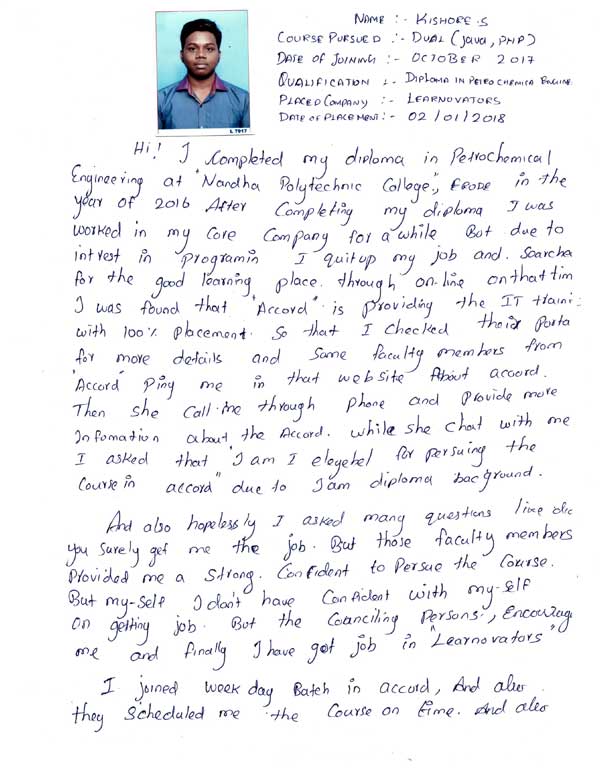 Name :- Kishore.S
Course Pursued :- Dual (Java, PHP)
Date of Joining :- October 2017
Qualification :- Diploma in Petro Chemica Engine
Placed Company :- Learnovators
Date of Placement :- 02/01/2018
L 7917
Hi! I Completed my diploma in Petrochemical
Engineering at "Nandha Polytechnic College", Erode in the
year of 2016 After Completing my diploma I was
worked in my Core Company for a while But due to
intrest in programin I quitup my job and. Searche
for the good learning place. through on-line onthattim
I was found that "Accord" is providing the IT traini
with 100% placement. So that I checked their Porta
for more details and Some faculty members from
"Accord" Ping me in that website About accord.
Then she Call me through Phone and Provide more
Infomation about the Accord. While she chat with me
I asked that "I am I elegebel for persuing the
Course in accord" due to I am diploma bacground.
And also hopelessly I asked many questions like dic
you surely get me the job. But those faculty members
Provided me a Strong. Confident to Persue the Course.
But my-self I don't have Confident with my-self
on getting job. But the Counciling Persons, Encourage
me and finally I have got job in "Learnovators"
I joined week day Batch in accord, And also
they Scheduled me the Course on time. And also